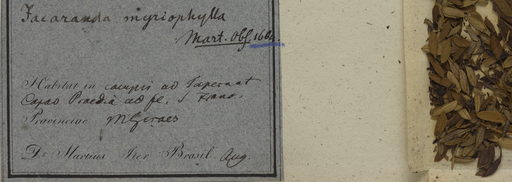 Jacaranda myriophylla
Mart. Obs 1684
Habitat in campis ad Tapernat
Capao Praedia ad fl. S. Franc.
Provinciae M Geraes
Dr. Martius Iter Brasil. Aug.